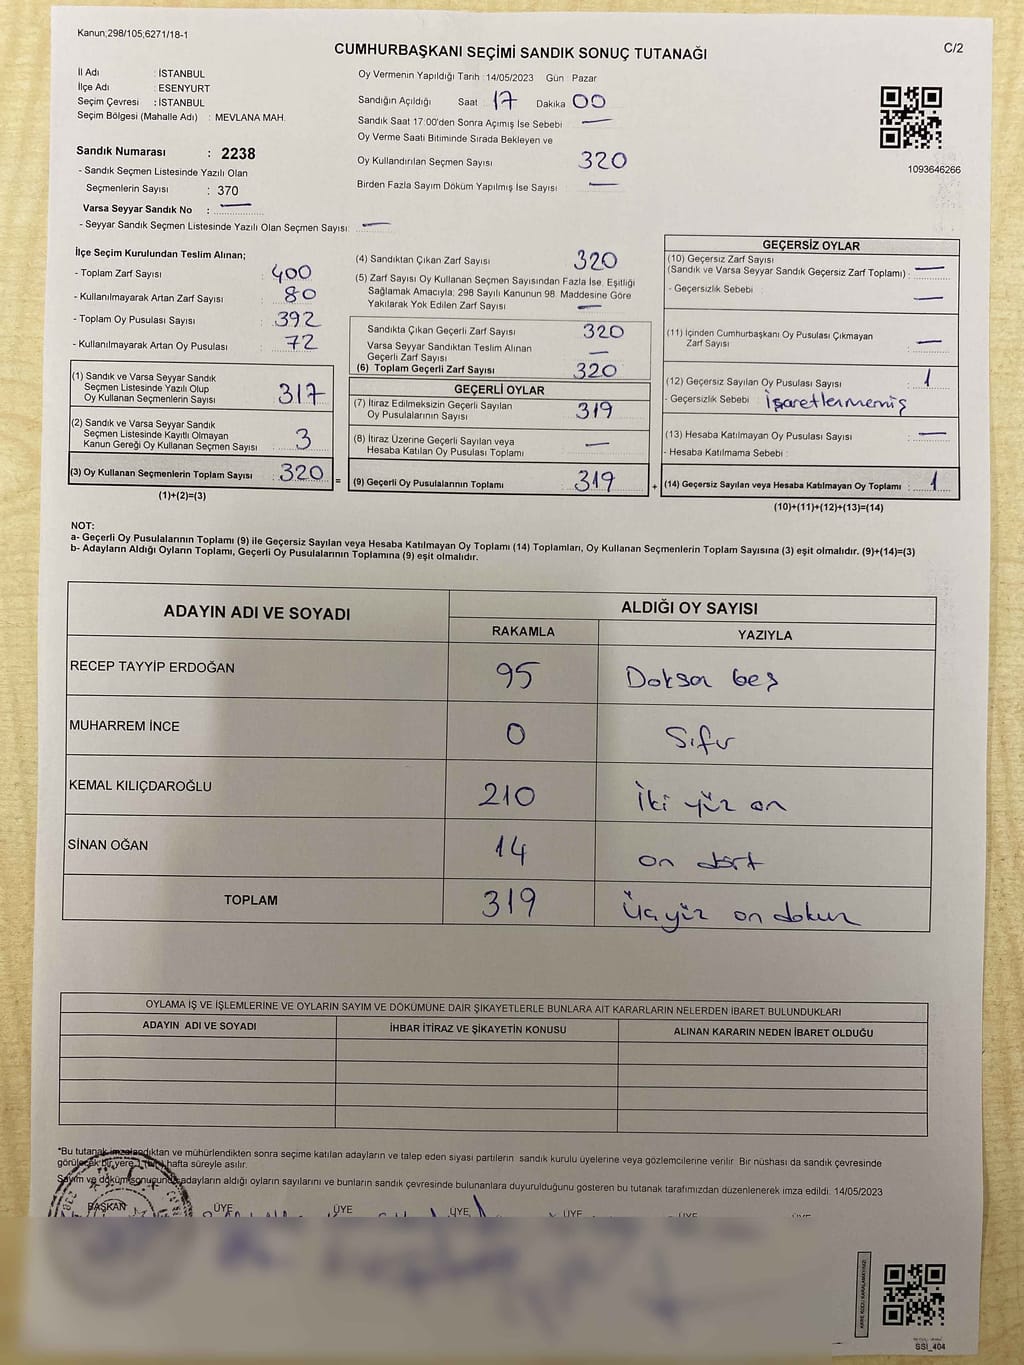 Kanun;298/105;6271/18-1
CUMHURBAŞKANI SEÇİMİ SANDIK SONUÇ TUTANAĞI
C/2
İl Adı : İSTANBUL
İlçe Adı : ESENYURT
Seçim Çevresi : İSTANBUL
Seçim Bölgesi (Mahalle Adı) : MEVLANA MAH.
Sandık Numarası : 2238
- Sandık Seçmen Listesinde Yazılı Olan
Seçmenlerin Sayısı : 370
Varsa Seyyar Sandık No : —
- Seyyar Sandık Seçmen Listesinde Yazılı Olan Seçmen Sayısı: —
Oy Vermenin Yapıldığı Tarih : 14/05/2023 Gün : Pazar
Sandığın Açıldığı Saat 17 Dakika 00
Sandık Saat 17:00'den Sonra Açımış İse Sebebi —
Oy Verme Saati Bitiminde Sırada Bekleyen ve
Oy Kullandırılan Seçmen Sayısı 320
Birden Fazla Sayım Döküm Yapılmış İse Sayısı : —
1093646266
İlçe Seçim Kurulundan Teslim Alınan;
- Toplam Zarf Sayısı : 400
- Kullanılmayarak Artan Zarf Sayısı : 80
- Toplam Oy Pusulası Sayısı : 392
- Kullanılmayarak Artan Oy Pusulası : 72
(1) Sandık ve Varsa Seyyar Sandık
Seçmen Listesinde Yazılı Olup
Oy Kullanan Seçmenlerin Sayısı : 317
(2) Sandık ve Varsa Seyyar Sandık
Seçmen Listesinde Kayıtlı Olmayan
Kanun Gereği Oy Kullanan Seçmen Sayısı : 3
(3) Oy Kullanan Seçmenlerin Toplam Sayısı : 320
(1)+(2)=(3)
=
(4) Sandıktan Çıkan Zarf Sayısı : 320
(5) Zarf Sayısı Oy Kullanan Seçmen Sayısından Fazla İse, Eşitliği
Sağlamak Amacıyla; 298 Sayılı Kanunun 98. Maddesine Göre
Yakılarak Yok Edilen Zarf Sayısı : —
Sandıkta Çıkan Geçerli Zarf Sayısı : 320
Varsa Seyyar Sandıktan Teslim Alınan
Geçerli Zarf Sayısı : —
(6) Toplam Geçerli Zarf Sayısı : 320
GEÇERLİ OYLAR
(7) İtiraz Edilmeksizin Geçerli Sayılan
Oy Pusulalarının Sayısı : 319
(8) İtiraz Üzerine Geçerli Sayılan veya
Hesaba Katılan Oy Pusulası Toplamı : —
(9) Geçerli Oy Pusulalarının Toplamı : 319
+
GEÇERSİZ OYLAR
(10) Geçersiz Zarf Sayısı
(Sandık ve Varsa Seyyar Sandık Geçersiz Zarf Toplamı) : —
- Geçersizlik Sebebi : —
(11) İçinden Cumhurbaşkanı Oy Pusulası Çıkmayan
Zarf Sayısı : —
(12) Geçersiz Sayılan Oy Pusulası Sayısı : 1
- Geçersizlik Sebebi : İşaretlenmemiş
(13) Hesaba Katılmayan Oy Pusulası Sayısı : —
- Hesaba Katılmama Sebebi :
(14) Geçersiz Sayılan veya Hesaba Katılmayan Oy Toplamı : 1
(10)+(11)+(12)+(13)=(14)
NOT:
a- Geçerli Oy Pusulalarının Toplamı (9) ile Geçersiz Sayılan veya Hesaba Katılmayan Oy Toplamı (14) Toplamları, Oy Kullanan Seçmenlerin Toplam Sayısına (3) eşit olmalıdır. (9)+(14)=(3)
b- Adayların Aldığı Oyların Toplamı, Geçerli Oy Pusulalarının Toplamına (9) eşit olmalıdır.
ADAYIN ADI VE SOYADI
ALDIĞI OY SAYISI
RAKAMLA YAZIYLA
RECEP TAYYİP ERDOĞAN 95 Doksan beş
MUHARREM İNCE 0 Sıfır
KEMAL KILIÇDAROĞLU 210 İki yüz on
SİNAN OĞAN 14 on dört
TOPLAM 319 Üçyüz on dokuz
OYLAMA İŞ VE İŞLEMLERİNE VE OYLARIN SAYIM VE DÖKÜMÜNE DAİR ŞİKAYETLERLE BUNLARA AİT KARARLARIN NELERDEN İBARET BULUNDUKLARI
ADAYIN ADI VE SOYADI İHBAR İTİRAZ VE ŞİKAYETİN KONUSU ALINAN KARARIN NEDEN İBARET OLDUĞU
*Bu tutanak imzalandıktan ve mühürlendikten sonra seçime katılan adayların ve talep eden siyasi partilerin sandık kurulu üyelerine veya gözlemcilerine verilir. Bir nüshası da sandık çevresinde
görülecek bir yere 1 (bir) hafta süreyle asılır.
Sayım ve döküm sonucunda adayların aldığı oyların sayılarını ve bunların sandık çevresinde bulunanlara duyurulduğunu gösteren bu tutanak tarafımızdan düzenlenerek imza edildi. 14/05/2023
BAŞKAN ÜYE ÜYE ÜYE ÜYE ÜYE
SSİ_404